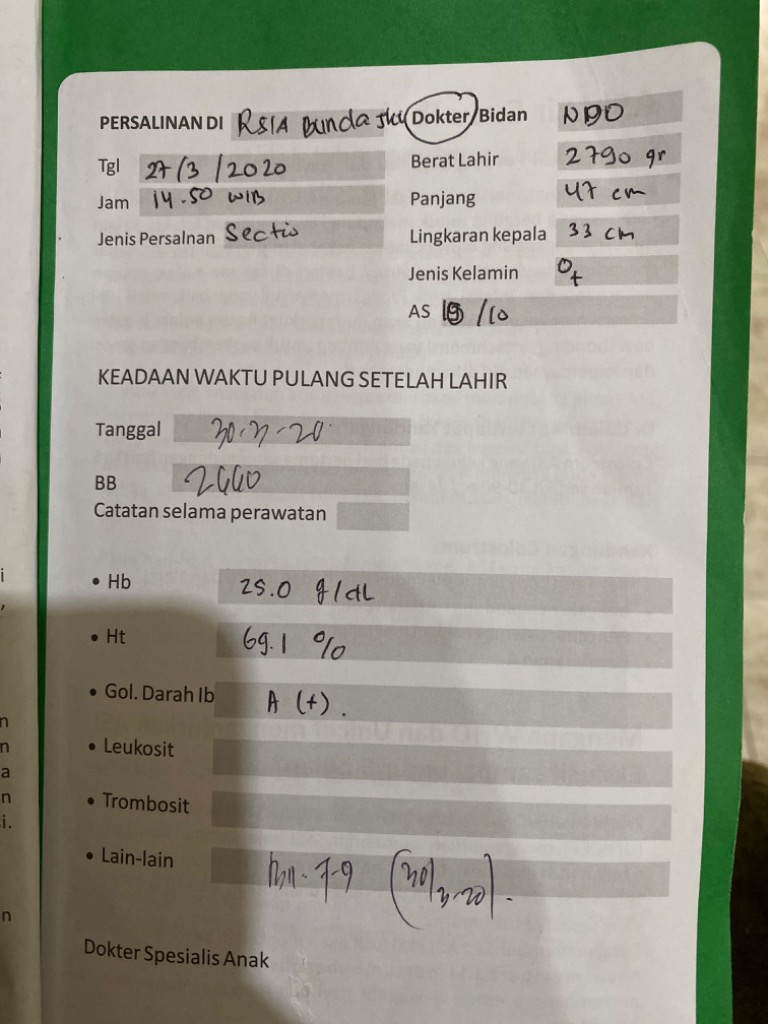 PERSALINAN DI RSIA Bunda Dokter/Bidan
Tgl 27/3/2020
Jam 14.50 WIB
Jenis Persalnan Sectio
Berat Lahir 2790 gr
Panjang 47 cm
Lingkaran kepala 33 cm
Jenis Kelamin ♀
AS /10
KEADAAN WAKTU PULANG SETELAH LAHIR
Tanggal 30-3-20
BB
Catatan selama perawatan
• Hb 25.0 g/dL
• Ht 69.1 %
• Gol. Darah Ib A (+).
• Leukosit
• Trombosit
• Lain-lain (30/3-20).
Dokter Spesialis Anak